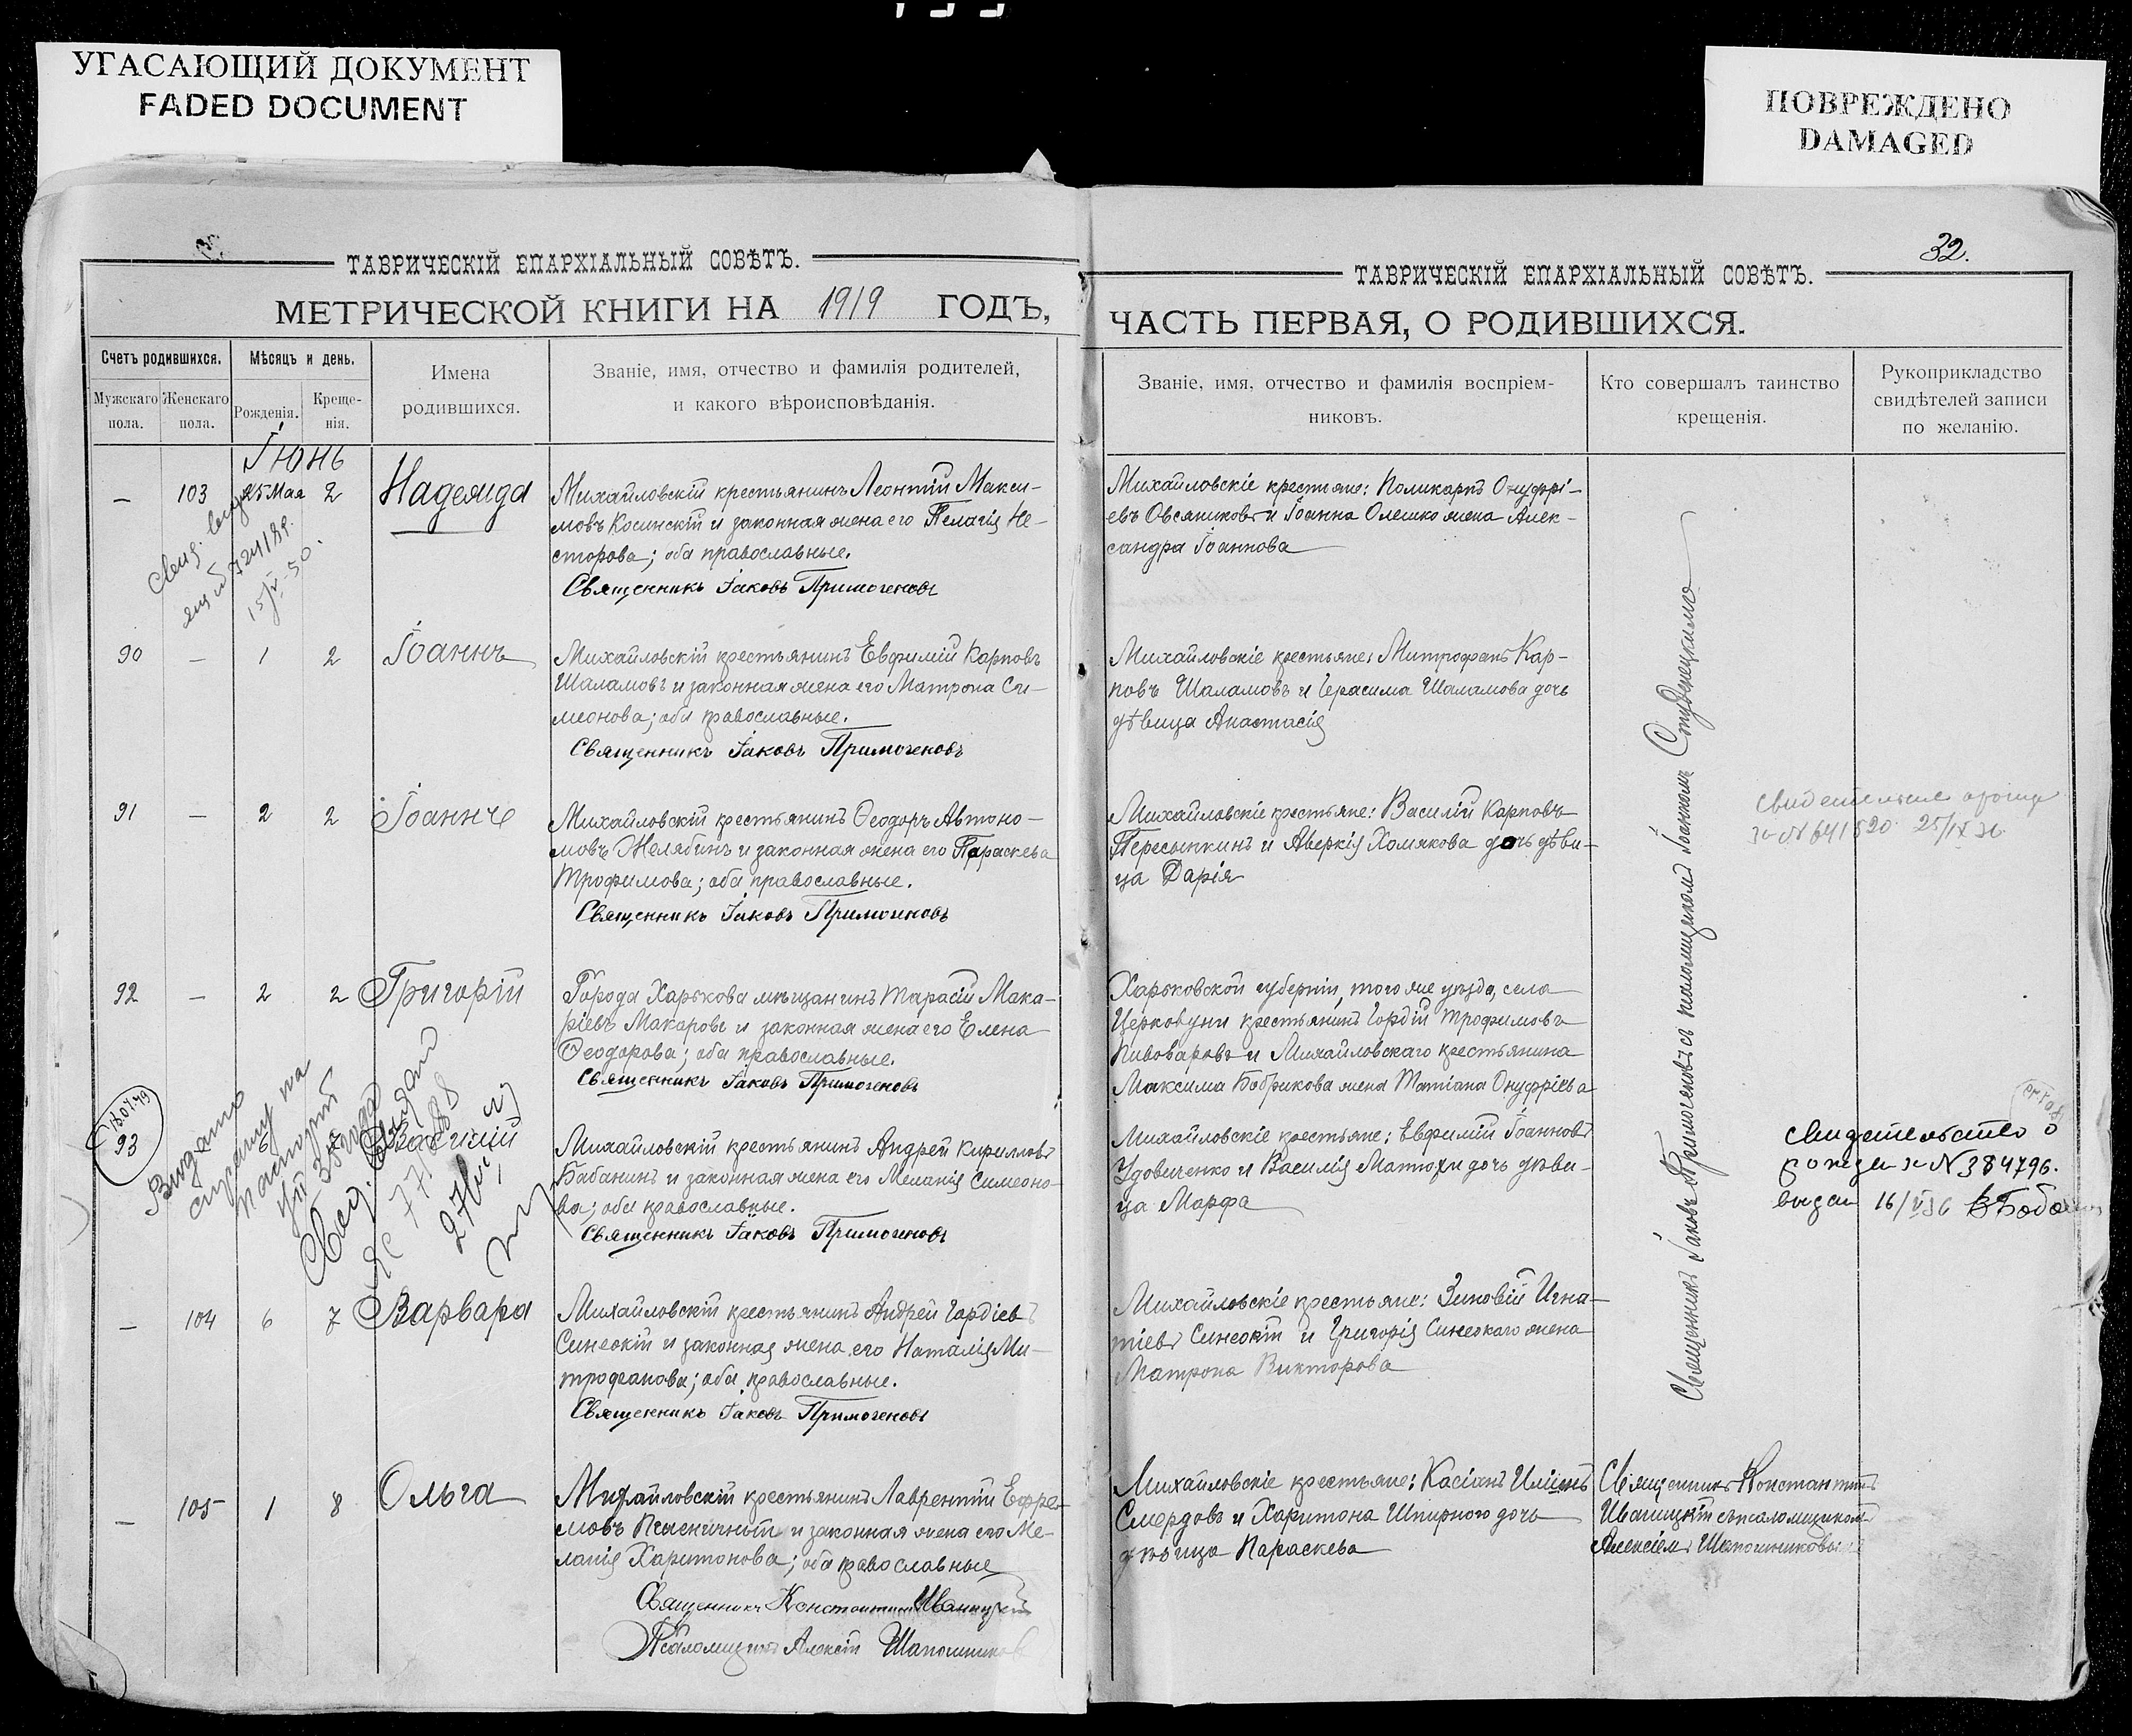 УГАСАЮЩИЙ ДОКУМЕНТ
FADED DOCUMENT
ПОВРЕЖДЕНО
DAMAGED
32.
ТАВРИЧЕСКІЙ ЕПАРХІАЛЬНЫЙ СОВѢТЪ.
МЕТРИЧЕСКОЙ КНИГИ НА 1919 ГОДЪ,
Счетъ родившихся.
Мѣсяцъ и день.
Имена
родившихся.
Званіе, имя, отчество и фамилія родителей,
и какого вѣроисповѣданія.
Мужскаго
пола.
Женскаго
пола.
Рожденія.
Креще-
нія.
ТАВРИЧЕСКІЙ ЕПАРХІАЛЬНЫЙ СОВѢТЪ.
ЧАСТЬ ПЕРВАЯ, О РОДИВШИХСЯ.
Званіе, имя, отчество и фамилія воспріем-
никовъ.
Кто совершалъ таинство
крещенія.
Рукоприкладство
свидѣтелей записи
по желанію.
Іюнь
— 103 25 Мая 2 Надежда
Михайловскій крестьянинъ Леонтій Макси-
мовъ Косинскій и законная жена его Пелагія Не-
сторова; оба православные.
Священникъ Іаковъ Примогеновъ
Михайловскіе крестьяне: Поликарпъ Онуфрі-
евъ Овсяниковъ и Іоанна Олешко жена Алек-
сандра Іоаннова
15/V-50.
90 — 1 2 Іоаннъ
Михайловскій крестьянинъ Евфимій Карповъ
Шаламовъ и законная жена его Матрона Си-
меонова; оба православные.
Священникъ Іаковъ Примогеновъ
Михайловскіе крестьяне: Митрофанъ Кар-
повъ Шаламовъ и Герасима Шаламова дочь
дѣвица Анастасія
91 — 2 2 Іоаннъ
Михайловскій крестьянинъ Ѳеодоръ Автоно-
мовъ Желябинъ и законная жена его Параскева
Трофимова; оба православные.
Священникъ Іаковъ Примогеновъ
Михайловскіе крестьяне: Василій Карповъ
Пересыпкинъ и Аверкія Хомякова дочь дѣви-
ца Дарія
№ 641520 25/IX 36
92 — 2 2 Григорій
Города Харькова мѣщанинъ Тарасій Мака-
ріевъ Макаровъ и законная жена его Елена
Ѳеодорова; оба православные.
Священникъ Іаковъ Примогеновъ
Харьковской губерніи, того же уѣзда, села
крестьянинъ Гордій Трофимовъ
Пивоваровъ и Михайловскаго крестьянина
Максима Бобрикова жена Татіана Онуфріева
93 6 7 Василій
Михайловскій крестьянинъ Андрей Кирилловъ
Бабанинъ и законная жена его Меланія Симеоно-
ва; оба православные.
Священникъ Іаковъ Примогеновъ
Михайловскіе крестьяне: Евфимій Іоанновъ
Удовиченко и Василія дочь дѣви-
ца Марфа
Свидетельство о
рожден № 384796.
выдан 16/V 36
— 104 6 7 Варвара
Михайловскій крестьянинъ Андрей Гордіевъ
Синеокій и законная жена его Наталія Ми-
трофанова; оба православные.
Священникъ Іаковъ Примогеновъ
Михайловскіе крестьяне: Зиновій Игна-
тіевъ Синеокій и Григорія Синеокаго жена
Матрона Викторова
Священникъ Іаковъ Примогеновъ съ псаломщикомъ Іоанномъ Студенецкимъ
— 105 1 8 Ольга
Михайловскій крестьянинъ Лаврентій Ефре-
мовъ Пшеничный и законная жена его Ме-
ланія Харитонова; оба православные
Священникъ Константинъ Иваницкій
Псаломщикъ Алексій Шапошниковъ
Михайловскіе крестьяне: Касіанъ
Смердовъ и Харитона Шпирного дочь
дѣвица Параскева
Священникъ Константинъ
Иваницкій съ псаломщикомъ
Алексіемъ Шапошниковымъ